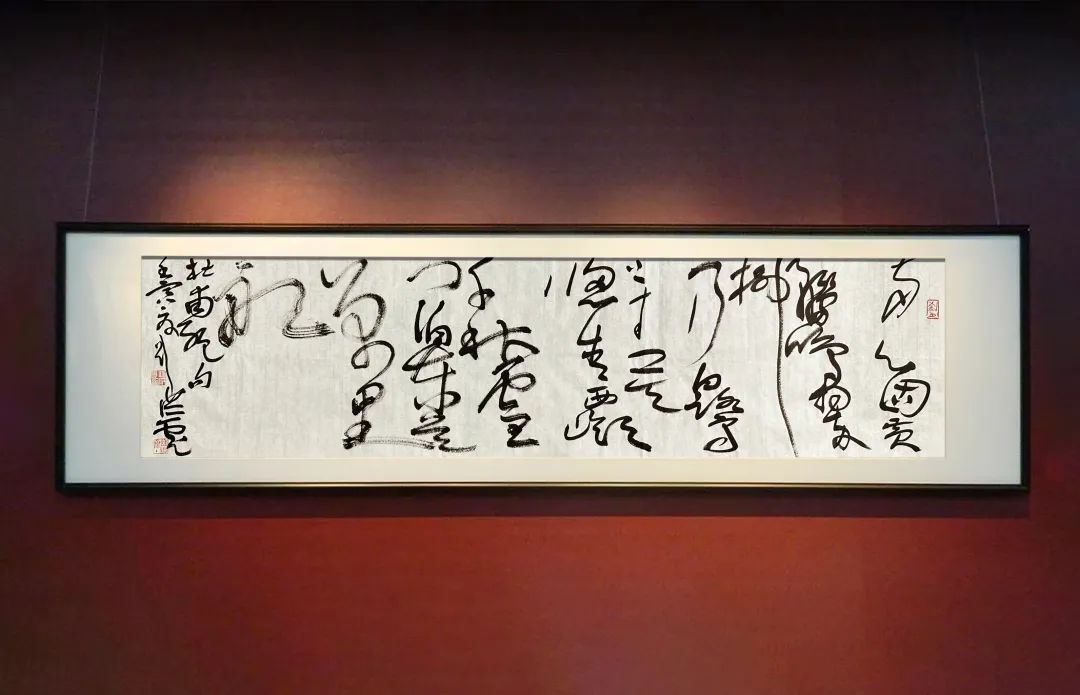 两个黄
鸝鳴翠
柳
一行白鷺
上青天
窗含西嶺
千秋雪
门泊東吴
萬里
船
杜甫绝句